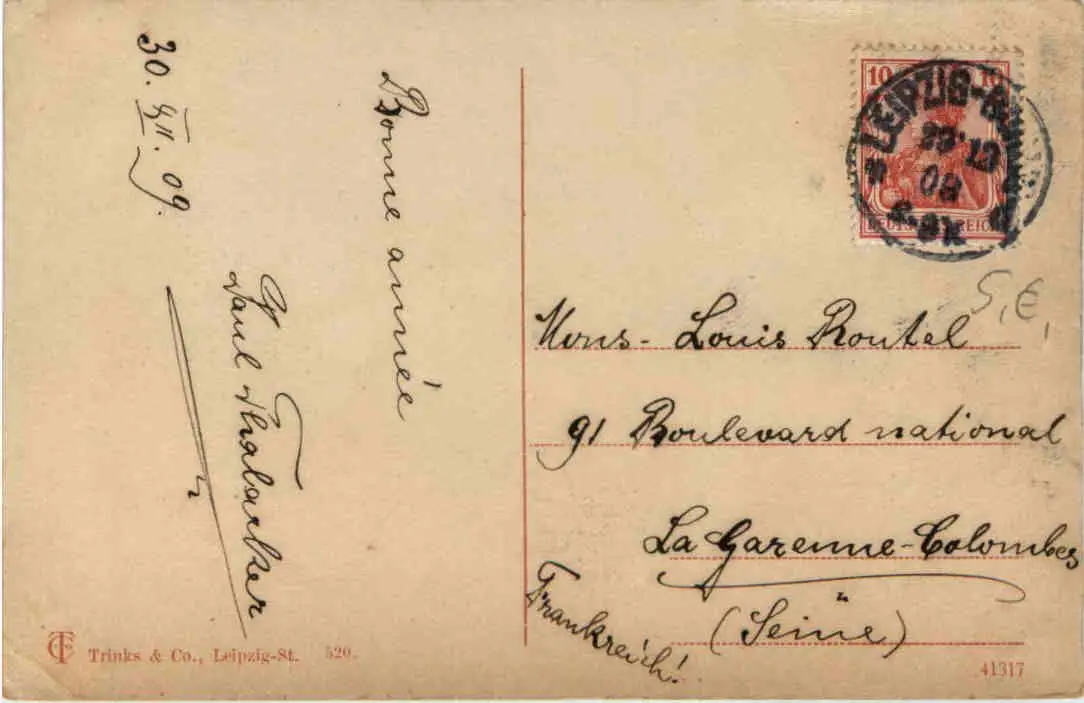 30. XII. 09.
Bonne année
Paul Thalacker
Trinks & Co., Leipzig-St. 520.
10 10
DEUTSCHES REICH
LEIPZIG-
12
09
5,€,
Mons- Louis Routel
91 Boulevard national
La Garenne-Colombes
(Seine)
Frankreich!
41317